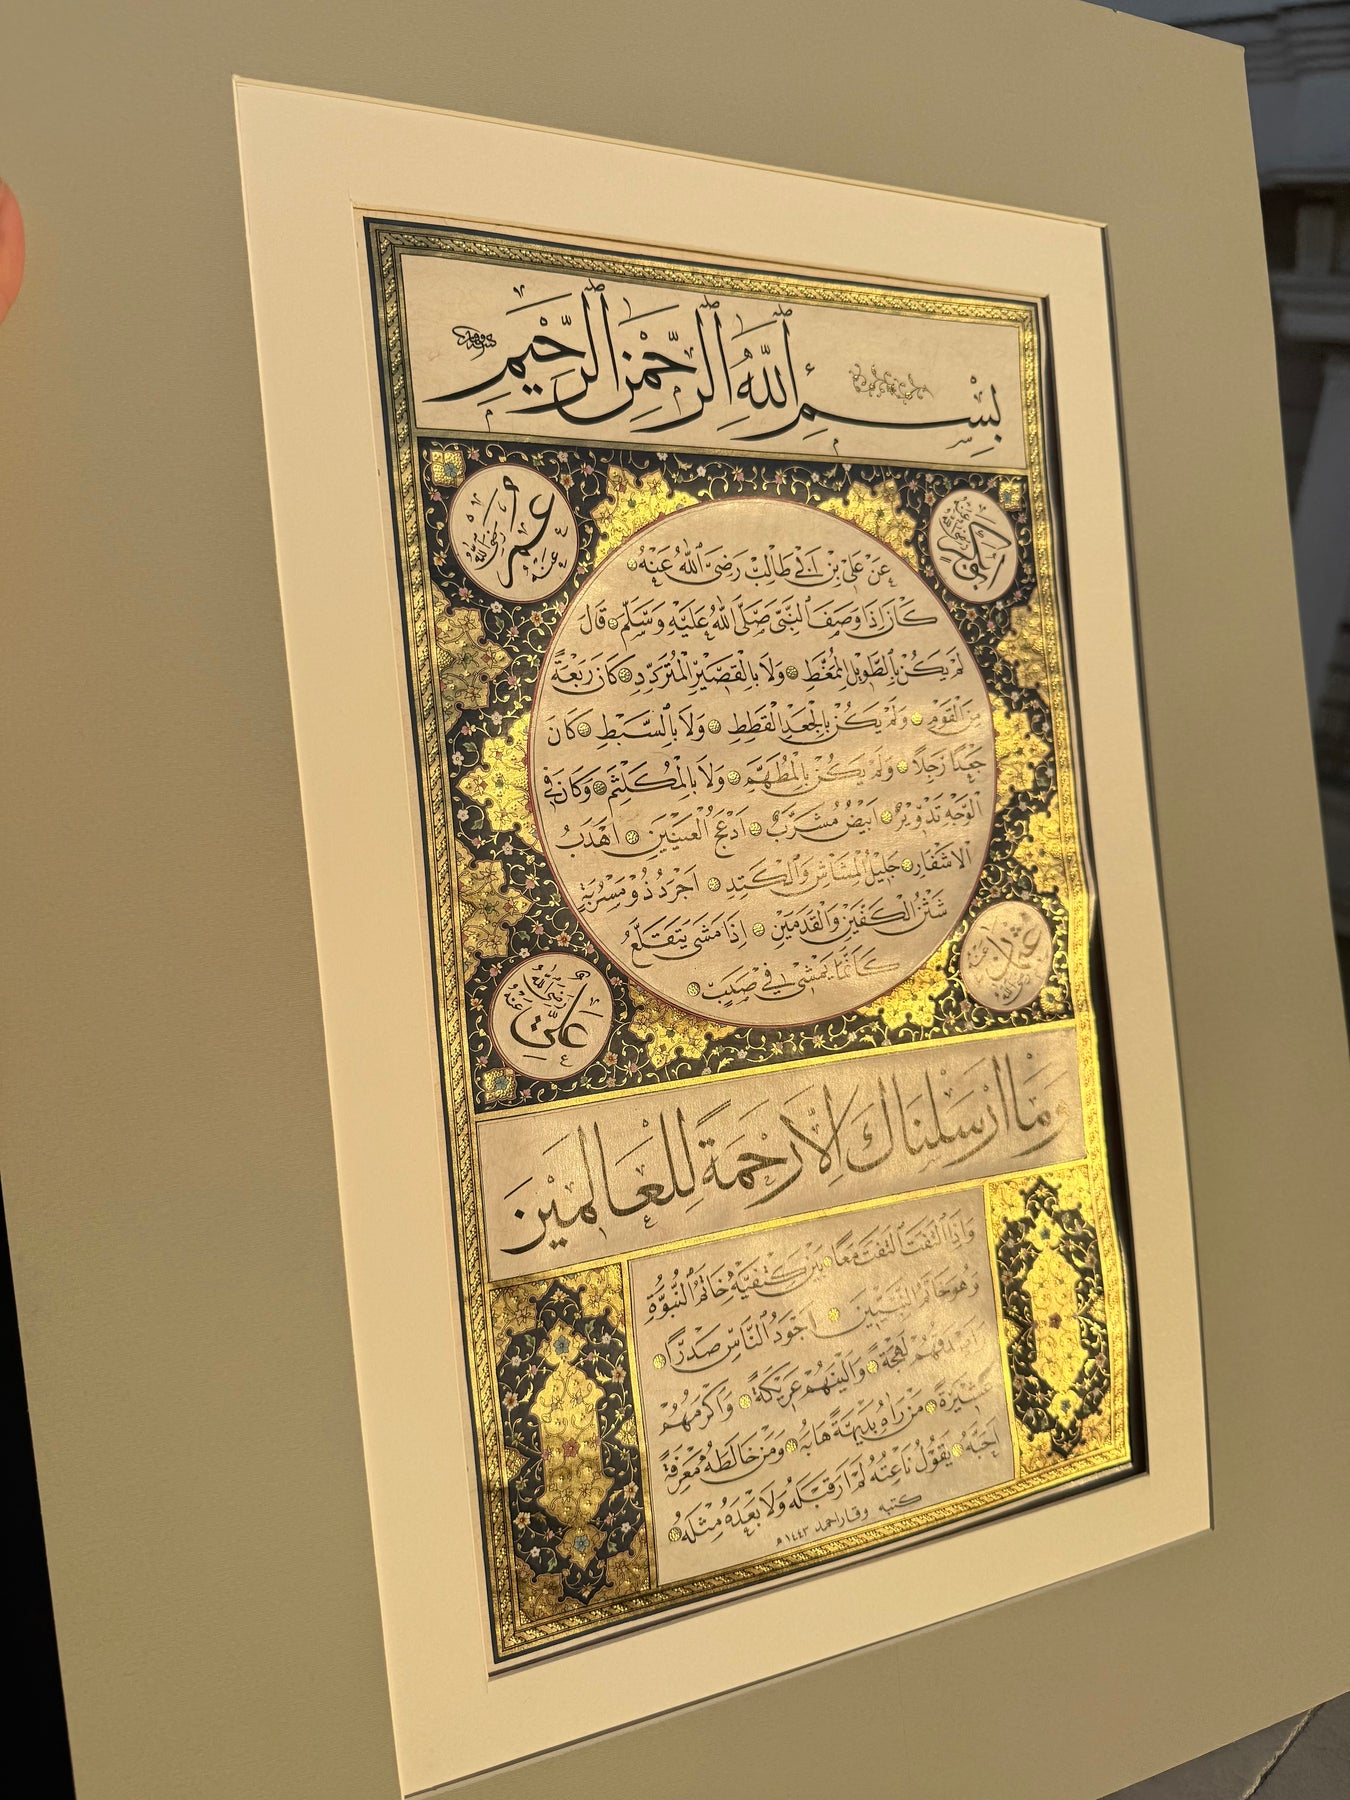 بِسْمِ ٱللَّهِ ٱلرَّحْمٰنِ ٱلرَّحِيمِ
عُمَر رَضِيَ اللهُ عَنْهُ
عَنْ عَلِيِّ بْنِ اَبِي طَالِبْ رَضِيَ ٱللهُ عَنْهُ
كَانَ اِذَا وَصَفَ ٱلنَّبِيَّ صَلَّى ٱللهُ عَلَيْهِ وَسَلَّمَ قَالَ
لَمْ يَكُنْ بِالطَّوِيلِ الْمُمَّغِطِ وَلَا بِالْقَصِيرِ الْمُتَرَدِّدِ كَانَ رَبْعَةً
مِنَ الْقَوْمِ وَلَمْ يَكُنْ بِالْجَعْدِ الْقَطَطِ وَلَا بِالسَّبْطِ كَانَ
جَعْدًا رَجِلًا وَلَمْ يَكُنْ بِالْمُطَهَّمِ وَلَا بِالْمُكَلْثَمِ وَكَانَ فِي
الْوَجْهِ تَدْوِيرٌ اَبْيَضُ مُشْرَبٌ اَدْعَجُ الْعَيْنَيْنِ اَهْدَبُ
الْاَشْفَارِ جَلِيلُ الْمُشَاشِ وَالْكَتَدِ اَجْرَدُ ذُو مَسْرُبَةٍ
شَثْنُ الْكَفَّيْنِ وَالْقَدَمَيْنِ اِذَا مَشَى يَتَقَلَّعُ
كَاَنَّمَا يَمْشِي فِي صَبَبٍ
عُثْمَان رَضِيَ اللهُ عَنْهُ
عَلِيّ رَضِيَ اللهُ عَنْهُ
وَمَا اَرْسَلْنَاكَ اِلَّا رَحْمَةً لِلْعَالَمِينَ
وَاِذَا الْتَفَتَ الْتَفَتَ مَعًا بَيْنَ كَتِفَيْهِ خَاتَمُ النُّبُوَّةِ
وَهُوَ خَاتَمُ النَّبِيِّينَ اَجْوَدُ النَّاسِ صَدْرًا
وَاَصْدَقُهُمْ لَهْجَةً وَاَلْيَنُهُمْ عَرِيكَةً وَاَكْرَمُهُمْ
عَشِيرَةً مَنْ رَاٰهُ بَدِيهَةً هَابَهُ وَمَنْ خَالَطَهُ مَعْرِفَةً
اَحَبَّهُ يَقُولُ نَاعِتُهُ لَمْ اَرَ قَبْلَهُ وَلَا بَعْدَهُ مِثْلَهُ
كتبه وقار احمد ١٤٤٣ هـ